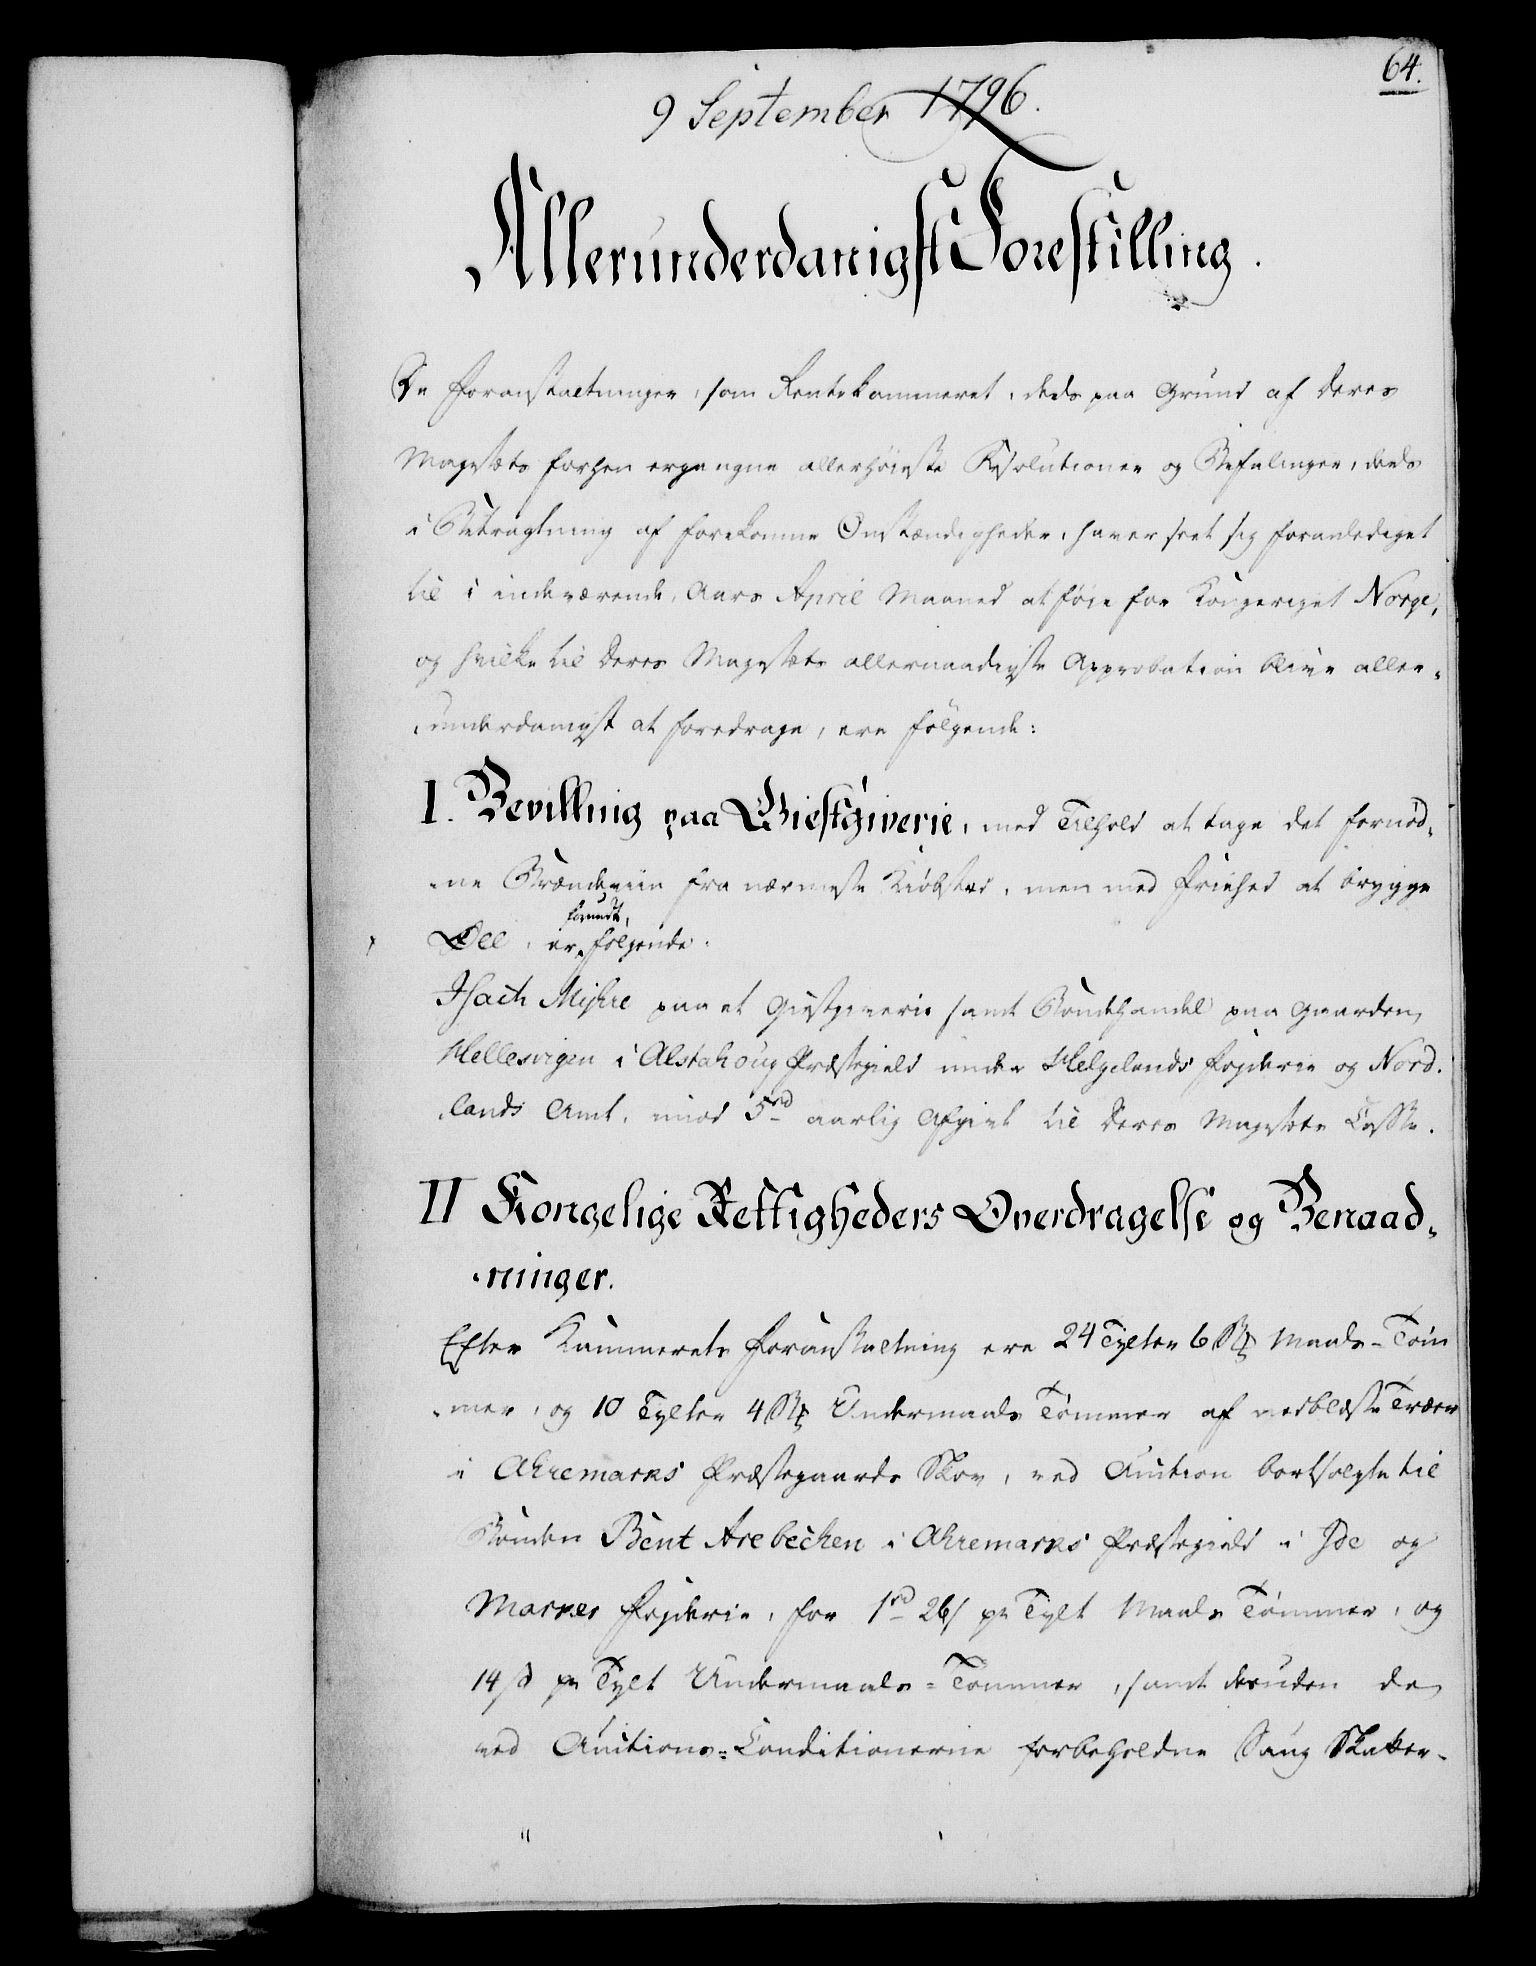 64.
9 September 1796.
Allerunderdanigst Forestilling.
De Foranstaltninger, som Rentekammeret, deels paa Grund af Deres
Majestæts forhen ergangne allerhøieste Resolutioner og Befalinger, deels
i Betragtning af forekomne Omstændigheder, haver seet sig foranlediget
til i indeværende Aars April Maaned at føie for Kongeriget Norge,
og hvilke til Deres Majestæts allernaadigste Approbation blive aller-
underdanigst at foredrage, ere følgende:
I. Bevilling paa Giestgiverie, med Tilhold at tage det fornød-
ne Brændeviin fra nærmeste Kiøbsted, men med Friehed at brygge
forundt,
Øll, er følgende:
Isach Myhre paa et Giestgiverie samt Bondehandel paa Gaarden
Hellesvigen i Alstahoug Præstegield under Helgelands Fogderie og Nord-
lands Amt, imod 5rd aarlig Afgivt til Deres Majestæts Casse.
II Kongelige Rettigheders Overdragelse og Benaad-
ninger.
Efter Kammerets Foranstaltning ere 24 Tylter 6 Stk Maals-Tøm
mer, og 10 Tylter 4 Stk Undermaals Tømmer af nedblæste Træer
i Ahremarks Præstegaards Skov, ved Auction bortsolgte til
Bonden Bent Arebechen i Ahremarks Præstegield i Ide og
Markers Fogderie, for 1rd 26s pr Tylt Maals Tømmer, og
14 s pr Tylt Undermaals-Tømmer, samt desuden de
ved Auctions-Conditionerne forbeholdne Saug Skatter-